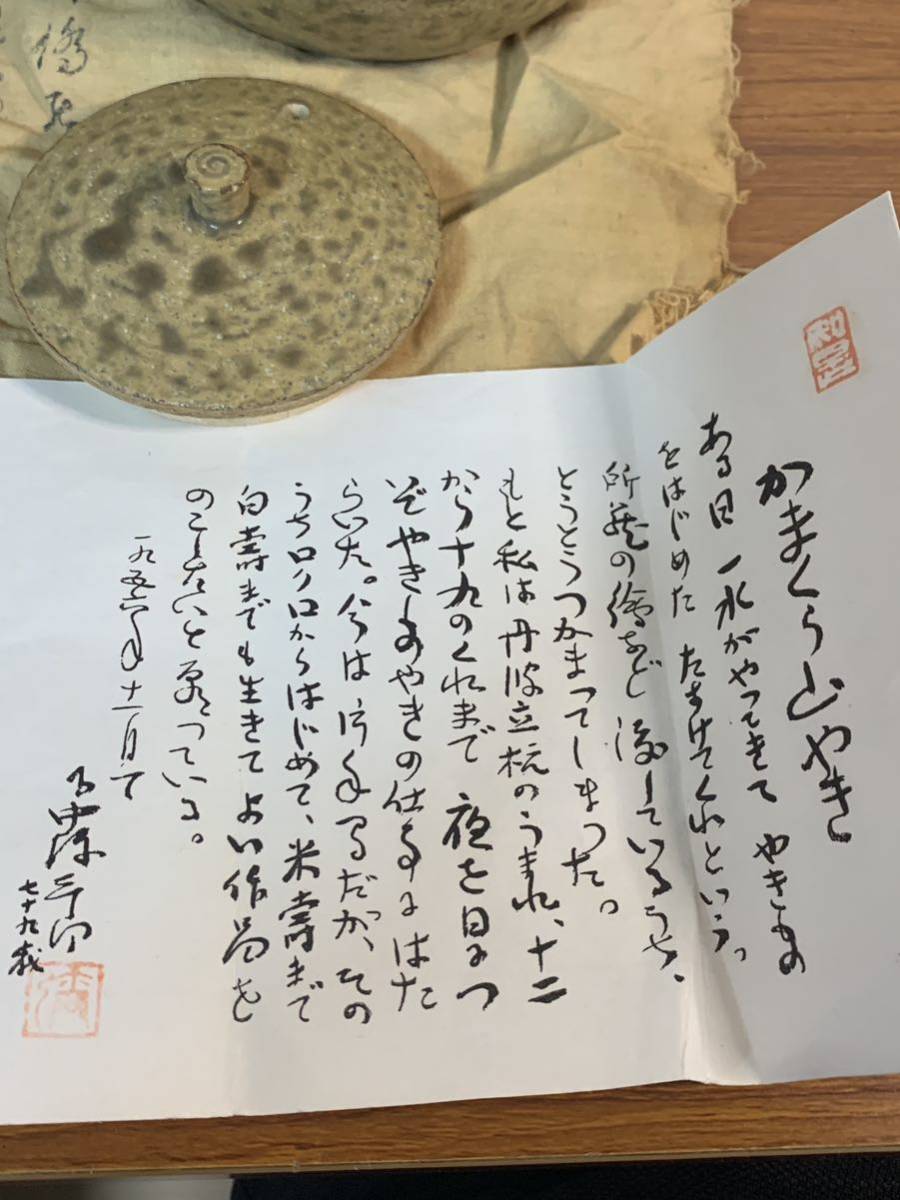 かまくら山やき
ある日 一水がやつてきて やきもの
をはじめた たすけてくれという。
所蔵の繪など 渡しているうち、
とうとうつかまってしまった。
もと私は丹波立杭のうまれ、十二
から十九のくれまで 夜を日につ
いでやきものやきの仕事にはた
らいた。今は片手間だが、その
うちロクロからはじめて、米壽まで
白壽までも生きてよい作品を
のこしたいと思っている。
一九五六年十一月
七十九歳